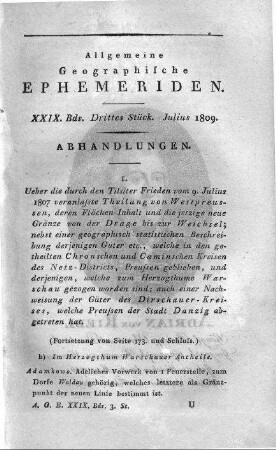 Allgemeine
Geographiſche
EPHEMERIDEN.
XXIX. Bds. Drittes Stück. Julius 1809.
ABHANDLUNGEN.
I.
Ueber die durch den Tilſiter Frieden vom 9. Julius
1807 veranlaſste Theilung von Weſtpreuſ-
ſen, deren Flächen Inhalt und die jetzige neue
Gränze von der Drage bis zur Weichſel;
nebſt einer geographiſch ſtatiſtiſchen Beſchrei-
bung derjenigen Güter etc., welche in den ge-
theilten Chronſchen und Caminſchen Kreiſen
des Netz-Diſtricts, Preuſſen geblieben, und
derjenigen, welche zum Herzogthume War-
ſchau gezogen worden ſind; auch einer Nach-
weiſung der Güter des Dirſchauer-Krei-
ſes, welche Preuſſen der Stadt Danzig ab-
getreten hat.
(Fortſetzung von Seite 173. und Schluſs.)
b) Im Herzogthum Warſchauer Antheile.
Adamkowo. Adeliches Vorwerk von 1 Feuerſtelle, zum
Dorfe Woldau gehörig, welches letztere als Gränz-
punkt der neuen Linie beſtimmt iſt.
A. G. E. XXIX. Bds. 3. St. U